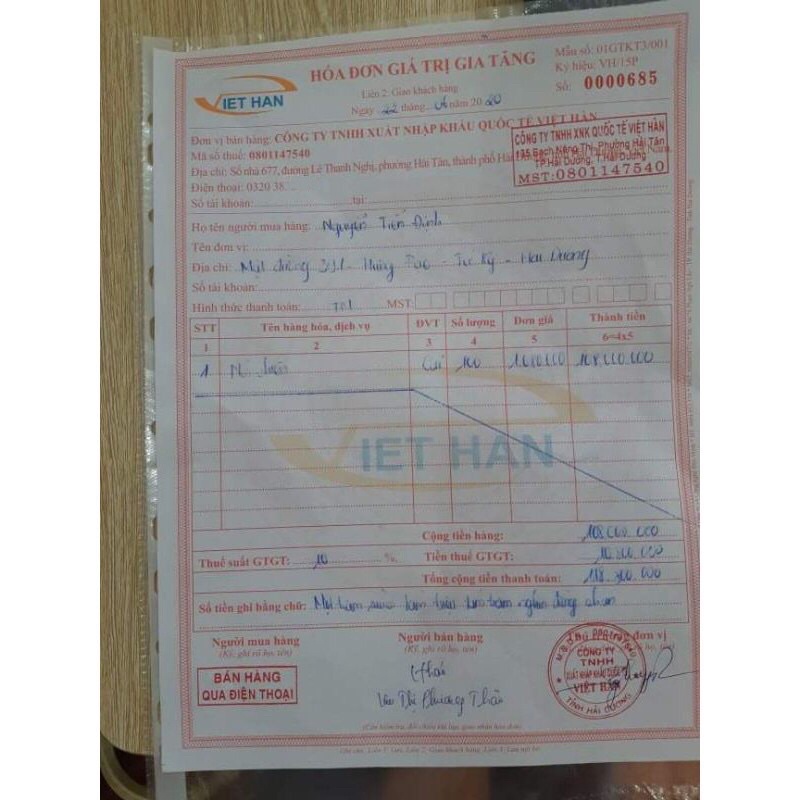 VIET HAN
HÓA ĐƠN GIÁ TRỊ GIA TĂNG
Liên 2: Giao khách hàng
Ngày 22 tháng 06 năm 2020
Mẫu số: 01GTKT3/001
Ký hiệu: VH/15P
Số: 0000685
Đơn vị bán hàng: CÔNG TY TNHH XUẤT NHẬP KHẨU QUỐC TẾ VIỆT HÀN
Mã số thuế: 0801147540
Địa chỉ: Số nhà 677, đường Lê Thanh Nghị, phường Hải Tân, thành phố Hải
Điện thoại: 0320 38
Số tài khoản: tại:
CÔNG TY TNHH XNK QUỐC TẾ VIỆT HÀN
Phường Hải Tân
TP.Hải Dương, T.Hải Dương
MST:0801147540
Họ tên người mua hàng: Nguyễn Tiến Định
Tên đơn vị:
Địa chỉ: Mặt đường 391 - Hưng Đạo - Tứ Kỳ - Hải Dương
Số tài khoản:
Hình thức thanh toán: MST
STT Tên hàng hóa, dịch vụ ĐVT Số lượng Đơn giá Thành tiền
1 2 3 4 5 6=4x5
1 Cái 100 1.080.000 108.000.000
VIET HAN
Cộng tiền hàng: 108.000.000
Thuế suất GTGT: 10 % Tiền thuế GTGT: 10.800.000
Tổng cộng tiền thanh toán: 118.800.000
Số tiền ghi bằng chữ: Một trăm mười tám triệu tám trăm nghìn đồng chẵn
Người mua hàng Người bán hàng đơn vị
(Ký, ghi rõ họ, tên) (Ký, ghi rõ họ, tên)
BÁN HÀNG
QUA ĐIỆN THOẠI
Thảo
Thị Phương Thảo
CÔNG TY
TNHH
XUẤT NHẬP KHẨU QUỐC TẾ
VIỆT HÀN
TỈNH HẢI DƯƠNG
(Cần kiểm tra, đối chiếu khi lập, giao nhận hóa đơn)